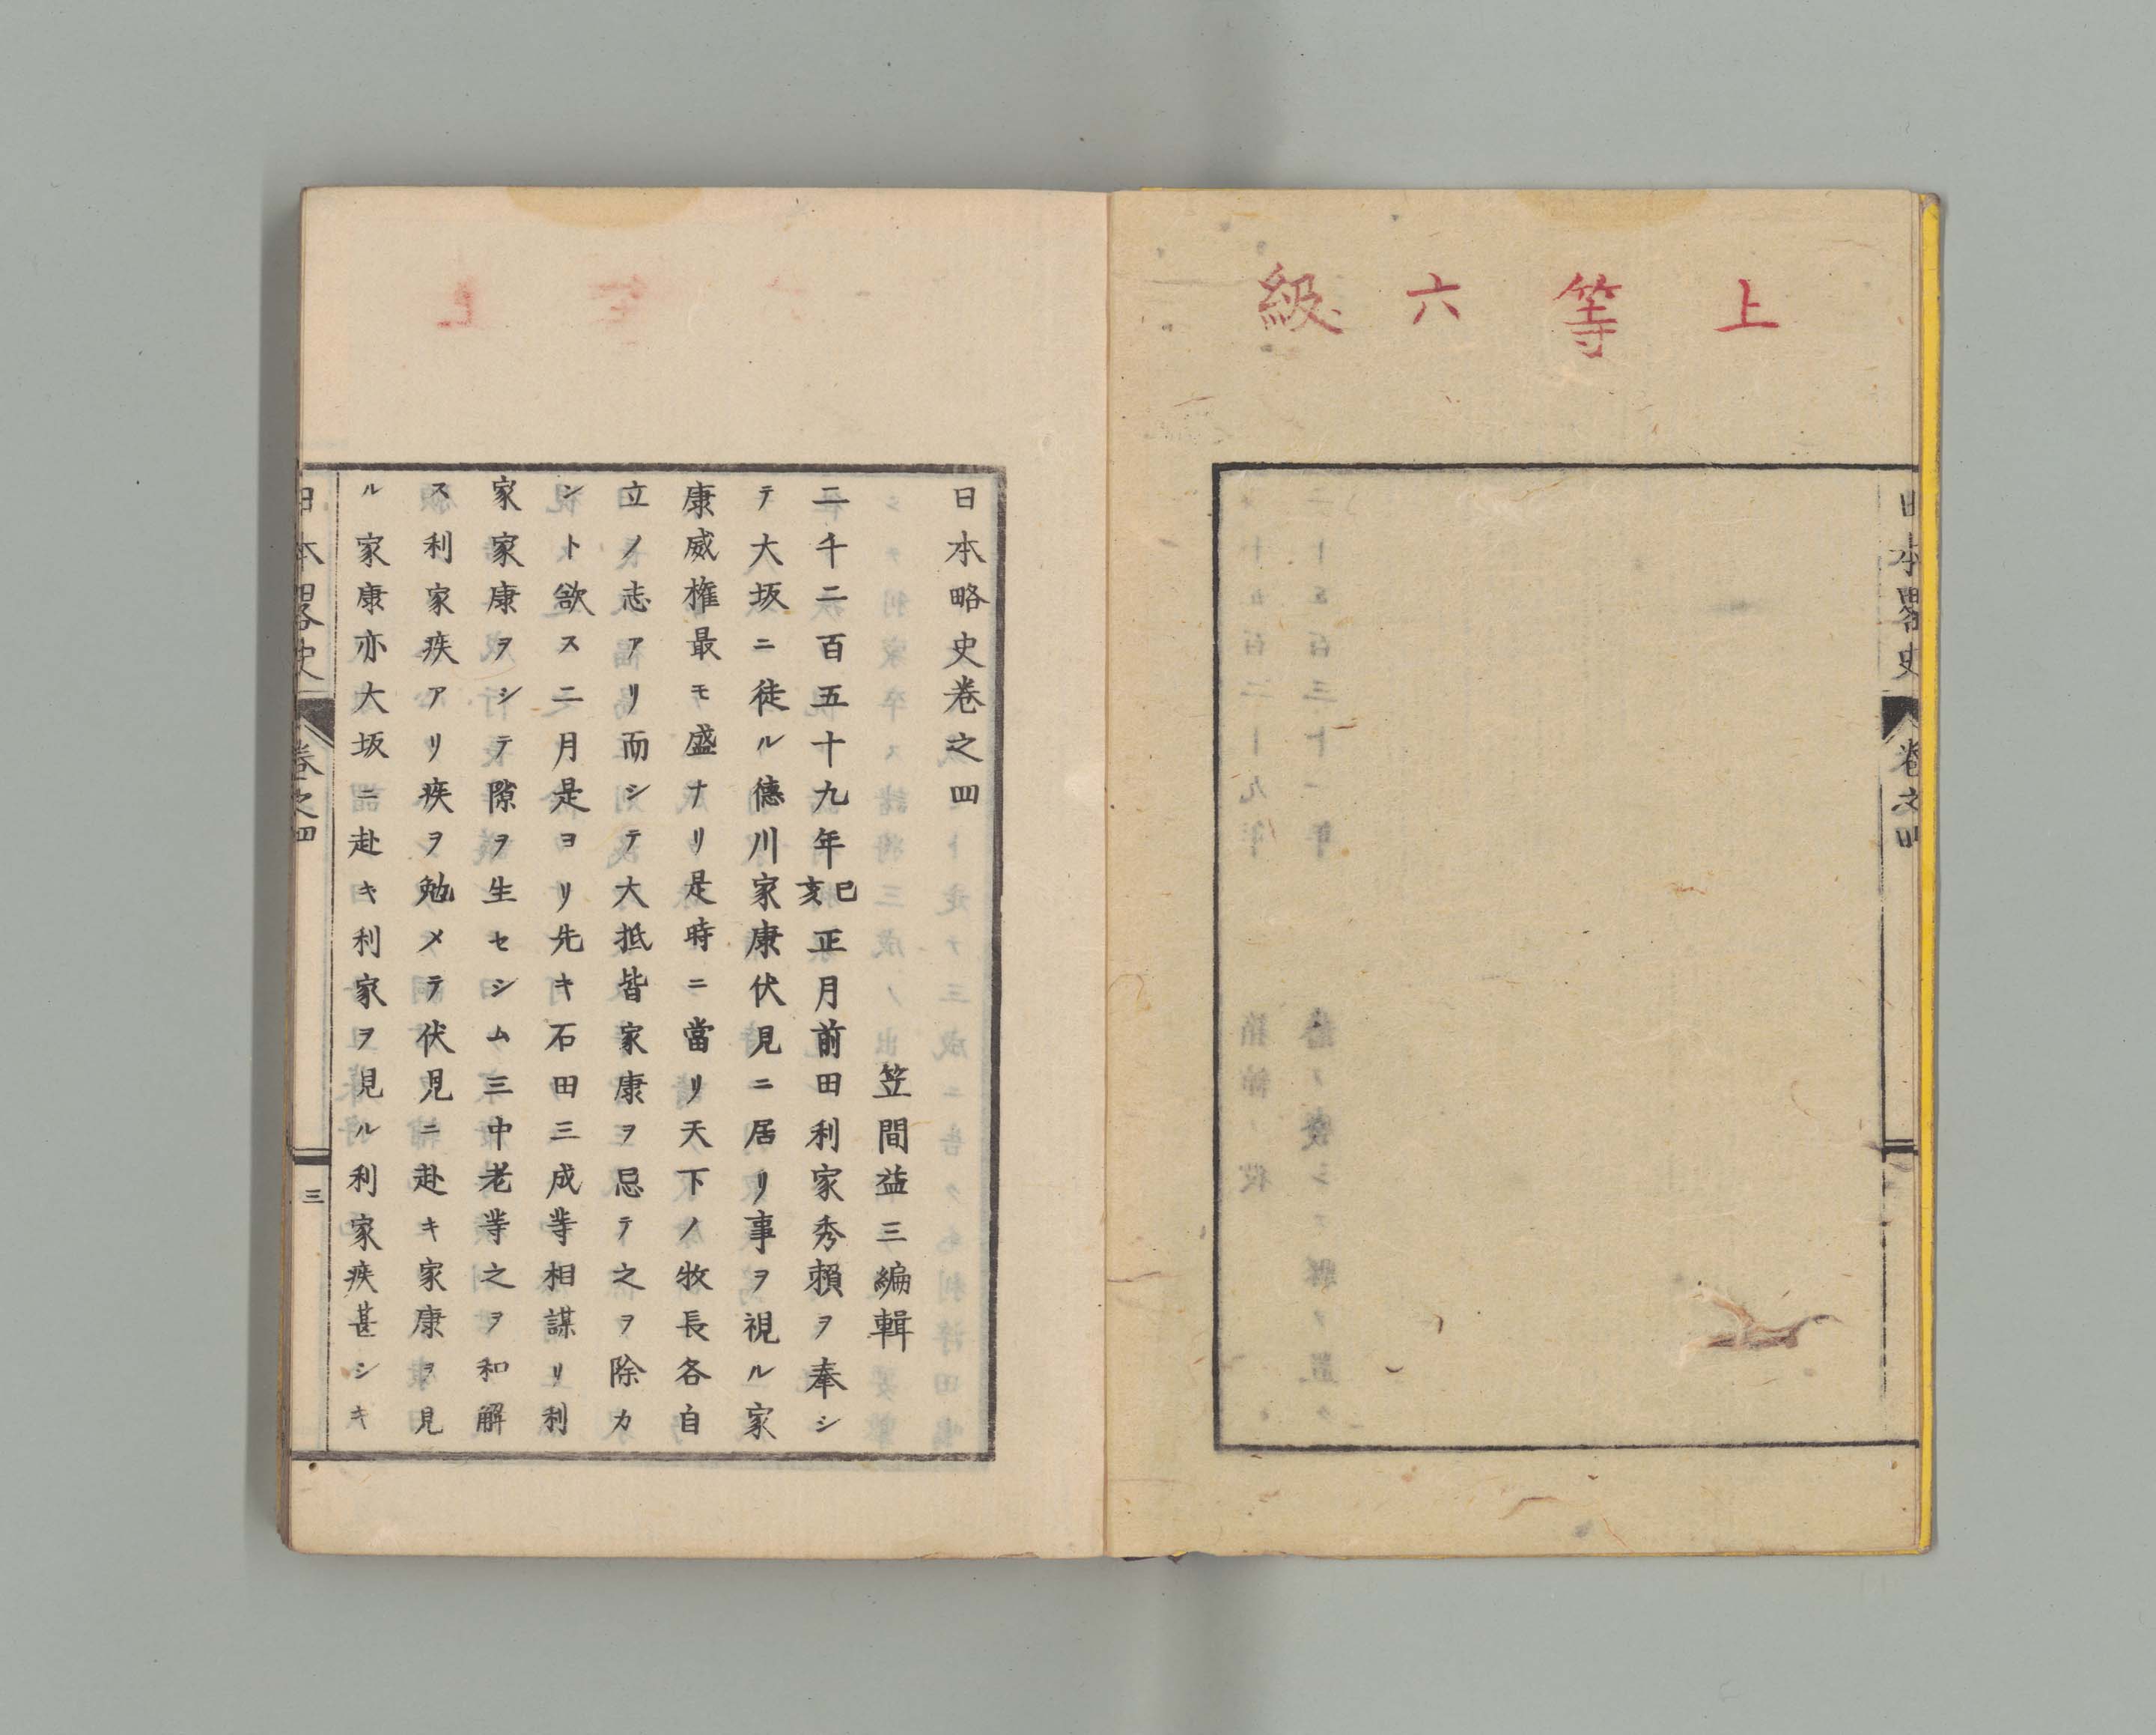 上等六級
日本畧史 卷之四
日本略史卷之四
笠間益三編輯
二千二百五十九年己亥正月前田利家秀賴ヲ奉シ
テ大坂ニ徒ル德川家康伏見ニ居リ事ヲ視ル家
康威權最モ盛ナリ是時ニ當リ天下ノ牧長各自
立ノ志アリ而シテ大抵皆家康ヲ忌テ之ヲ除カ
ント欲ス二月是ヨリ先キ石田三成等相謀リ利
家家康ヲシテ隙ヲ生セシム三中老等之ヲ和解
ス利家疾アリ疾ヲ勉メテ伏見ニ赴キ家康ヲ見
ル家康亦大坂ニ赴キ利家ヲ見ル利家疾甚シキ
日本畧史 卷之四 三